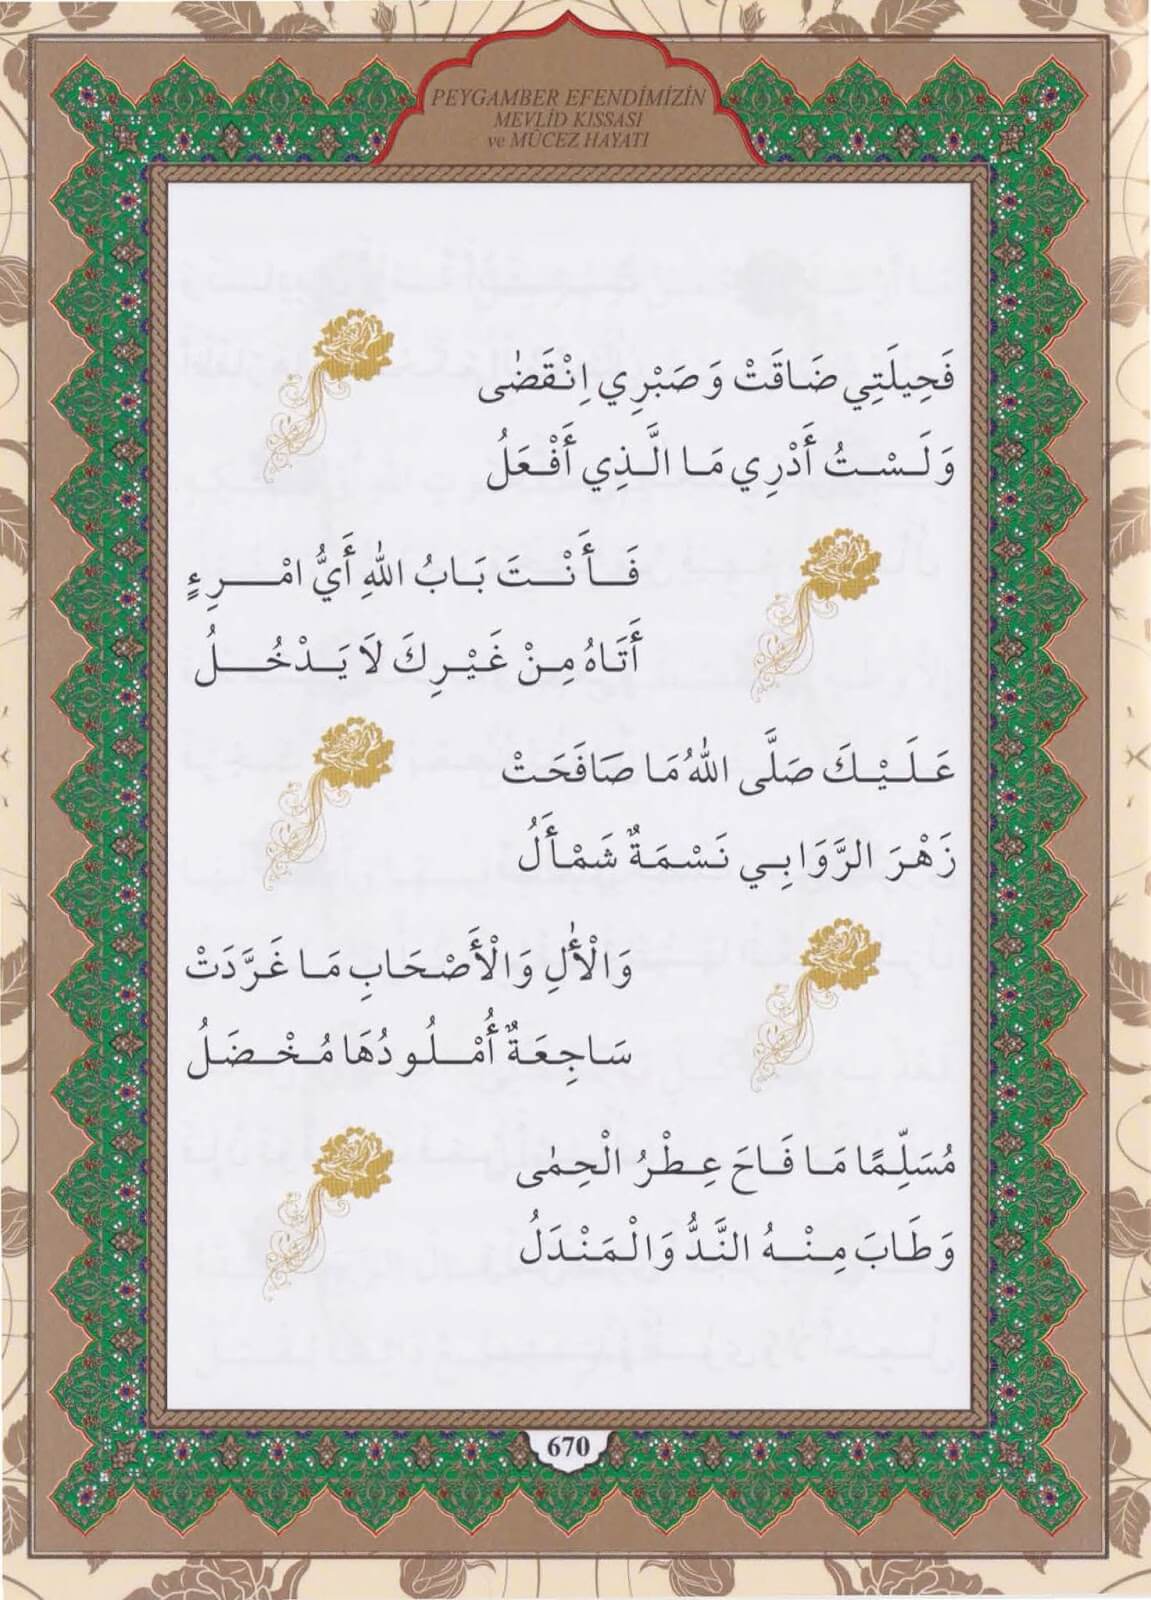 PEYGAMBER EFENDİMİZİN
MEVLİD KISSASI
ve MÛCEZ HAYATI
فَحِيلَتِي ضَاقَتْ وَصَبْرِي اِنْقَضٰى
وَلَسْتُ أَدْرِي مَا الَّذِي أَفْعَلُ
فَأَنْتَ بَابُ اللهِ أَيُّ امْرِءٍ
أَتَاهُ مِنْ غَيْرِكَ لَا يَدْخُلُ
عَلَيْكَ صَلَّى اللهُ مَا صَافَحَتْ
زَهْرَ الرَّوَابِي نَسْمَةٌ شَمْأَلُ
وَالْأٰلِ وَالْأَصْحَابِ مَا غَرَّدَتْ
سَاجِعَةٌ أُمْلُودُهَا مُخْضَلُ
مُسَلِّمًا مَا فَاحَ عِطْرُ الْحِمٰى
وَطَابَ مِنْهُ النَّدُّ وَالْمَنْدَلُ
670